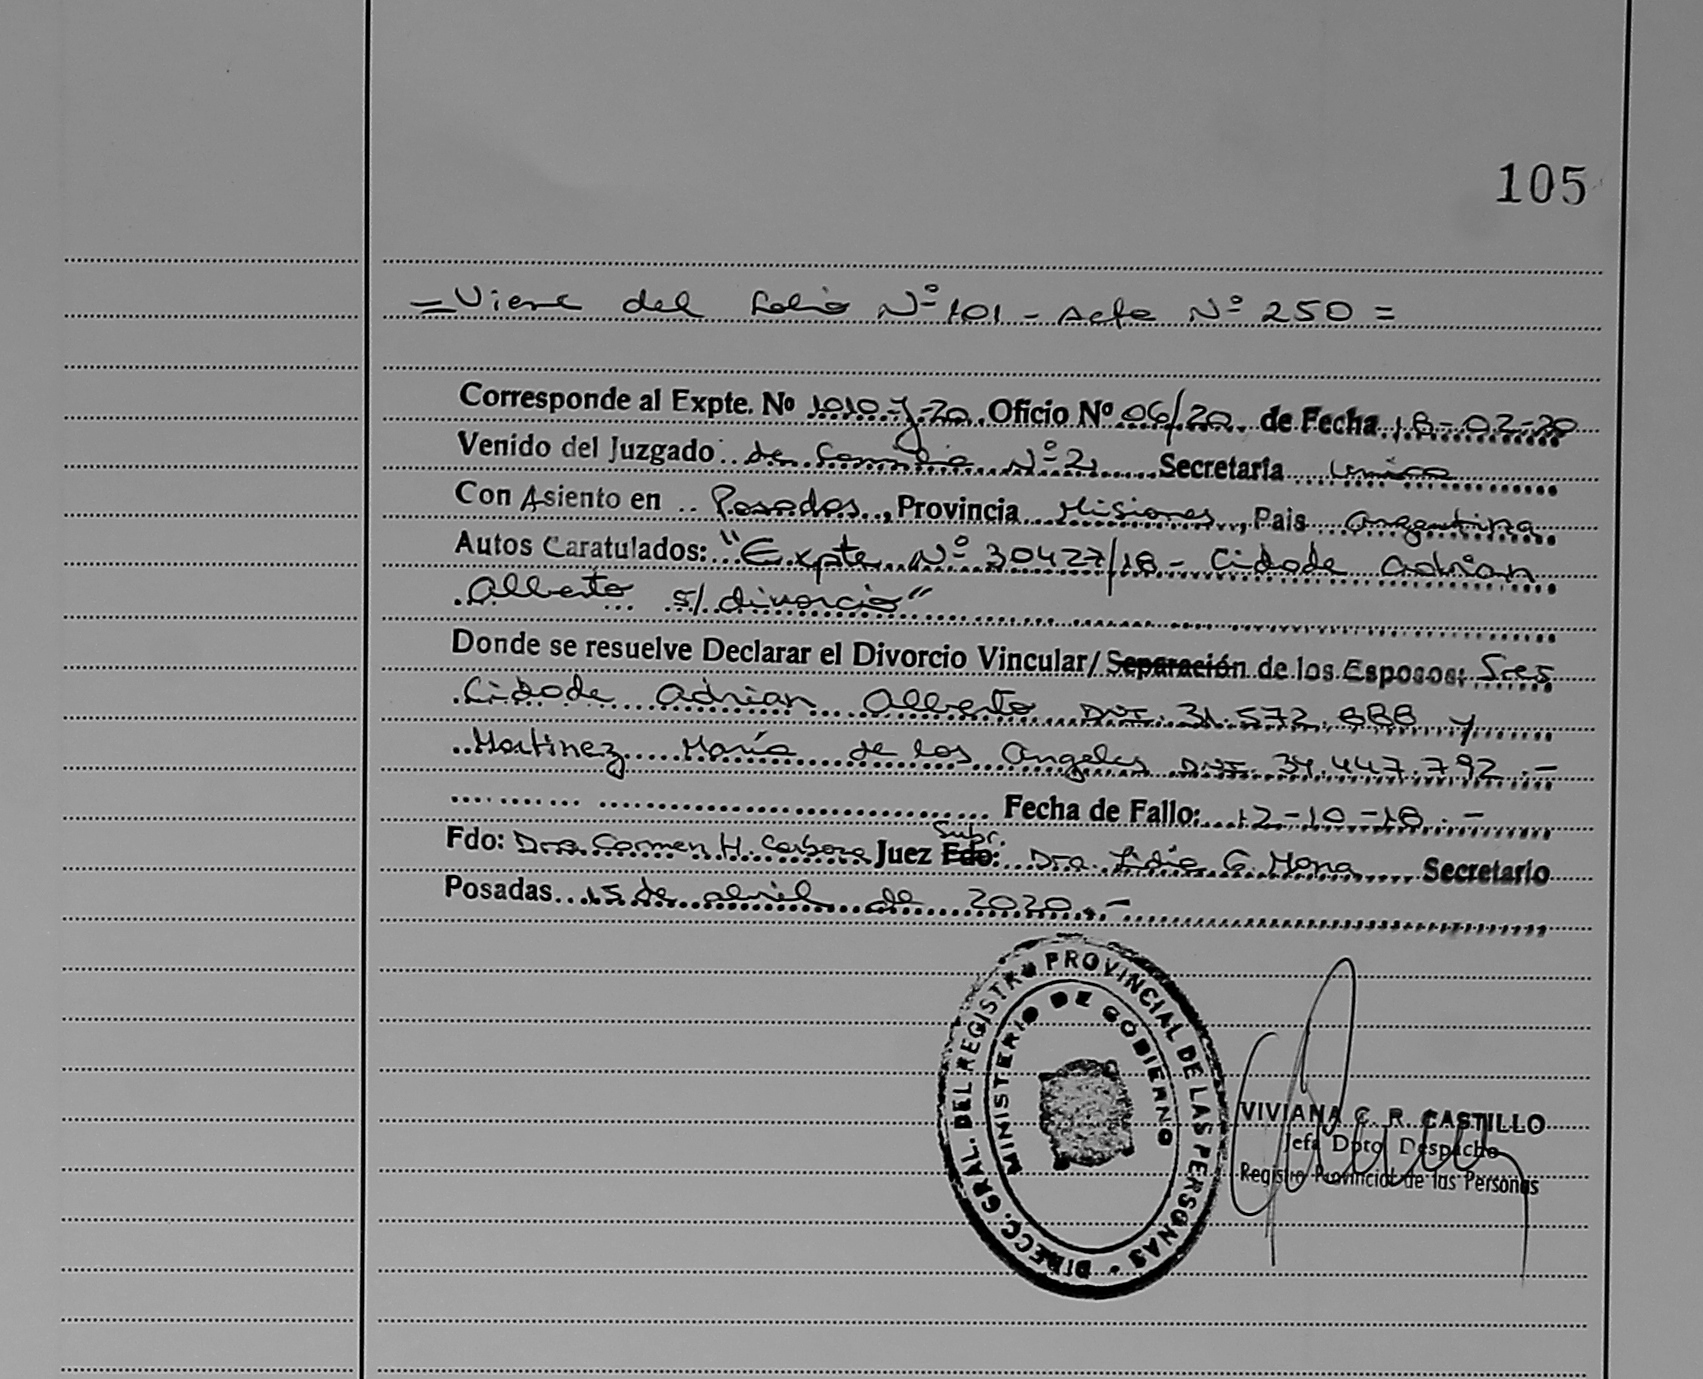 105
= Viene del folio Nº 101 - Acta Nº 250 =
Corresponde al Expte. Nº 1010-J-20. Oficio Nº 06/20. de Fecha 18-02-20
Venido del Juzgado de Familia Nº 2 Secretaría única
Con Asiento en Posadas, Provincia Misiones, Pais Argentina
Autos Caratulados: "Expte Nº 30427/18 - Cidade Adrian
Alberto s/ divorcio"
Donde se resuelve Declarar el Divorcio Vincular/ Separación de los Esposos: Sres
Cidade Adrian Alberto DNI. 31.572.888 y
Martinez María de los Angeles DNI. 34.447.792.-
Fecha de Fallo: 12-10-18.-
Subr.
Fdo: Dra. Carmen H. Carboza Juez Fdo: Dra. Lidia G. Secretario
Posadas 15 de abril de 2020.-
DIRECC. GRAL. DEL REGISTRO PROVINCIAL DE LAS PERSONAS
MINISTERIO DE GOBIERNO
VIVIANA C. R. CASTILLO
Jefa Dpto. Despacho
Registro Provincial de las Personas